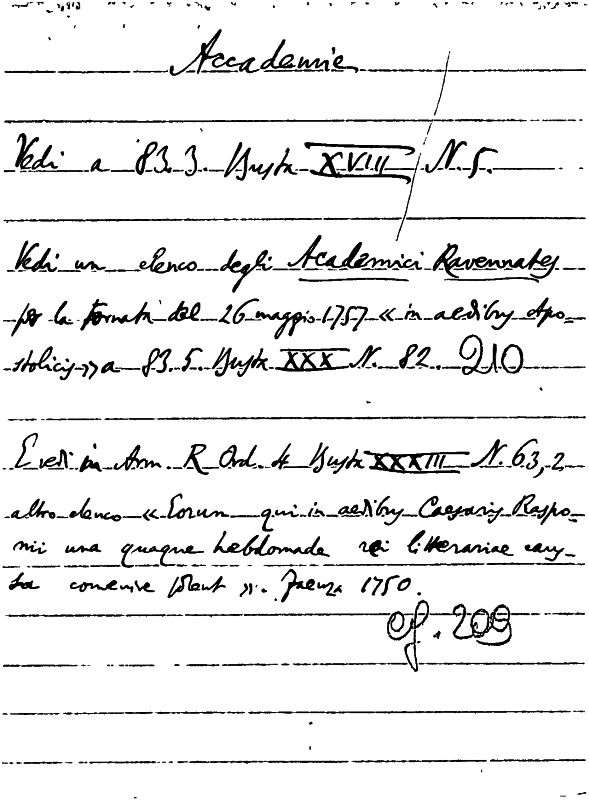 Accademie
Vedi a 83.3. Busta XVIII N. 5.
Vedi un elenco degli Academici Ravennates
per la tornata del 26 maggio 1757 « in aedibus Apo=
stolicis » a 83.5. Busta XXX N. 82. 210
E vedi in Arm. R Ord. 4 Busta XXXIII N. 63,2
altro elenco « Eorum qui in aedibus Caesaris Raspo=
nii una quaque hebdomada rei litterariae caus=
sa convenire solent ». Faenza 1750.
cf. 209